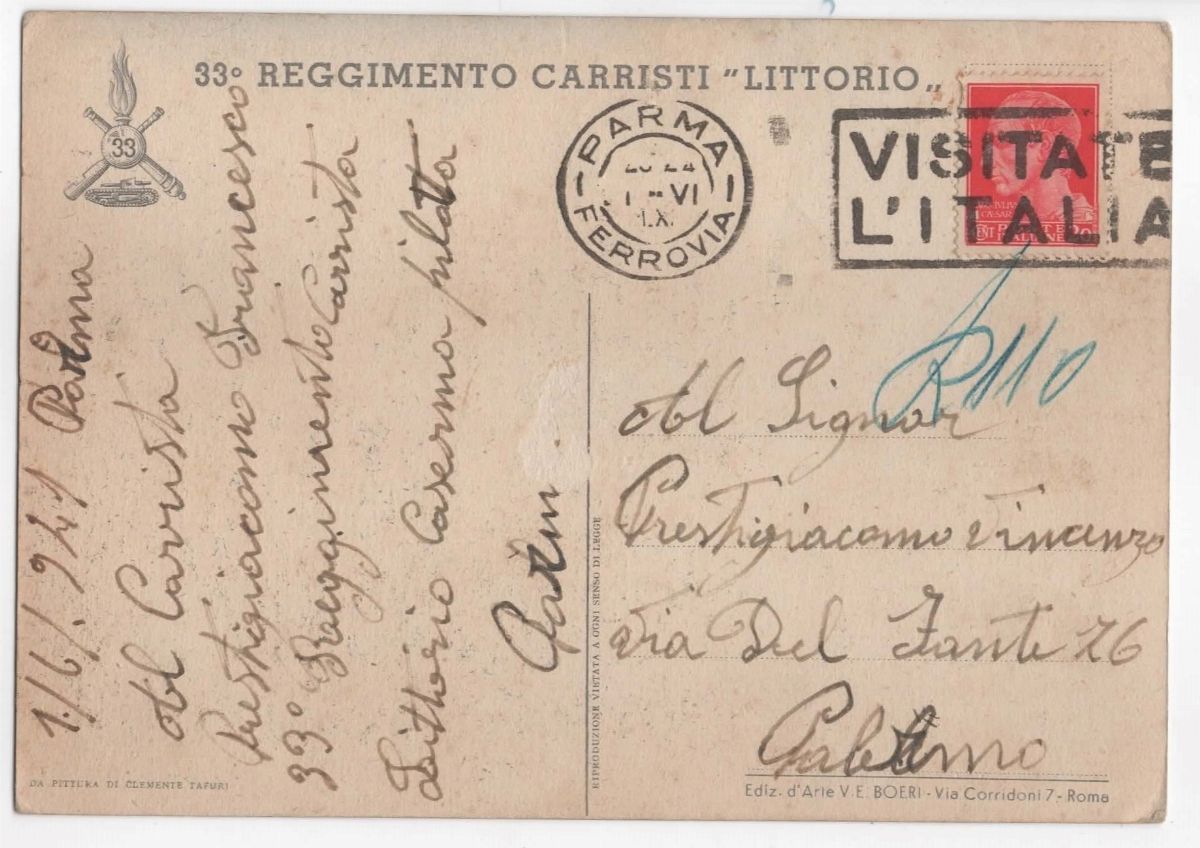 33° REGGIMENTO CARRISTI "LITTORIO„
33
PARMA
FERROVIA
1 - VI
VISITATE
L'ITALIA
IVLIVS
CAESAR
CENT POSTE 20
ITALIANE
R 110
1/6/941 Parma
Al Carrista
Prestigiacomo Francesco
33° Reggimento Carrista
Littorio Caserma pilotta
Parm
Al Signor
Prestigiacomo Vincenzo
Via Del Fante 26
Palermo
RIPRODUZIONE VIETATA A OGNI SENSO DI LEGGE
DA PITTURA DI CLEMENTE TAFURI
Ediz. d'Arte V. E. BOERI - Via Corridoni 7 - Roma